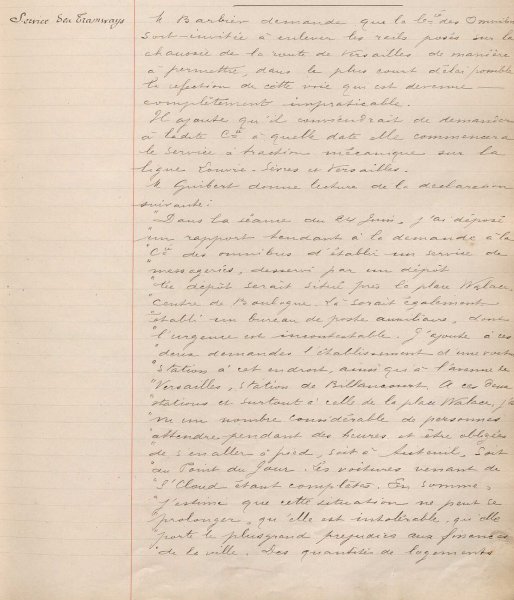 Service des Tramways
M Barbier demande que la Cie des Omnibus
soit invitée à enlever les rails posés sur la
chaussée de la route de Versailles de manière
à permettre, dans le plus court délai possible
la réfection de cette voie qui est devenue
complètement impraticable.
Il ajoute qu'il conviendrait de demander
à ladite Cie à quelle date elle commencera
le service à traction mécanique sur la
ligne Louvre-Sèvres et Versailles.
M Guibert donne lecture de la déclaration
suivante:
"Dans la séance du 24 Juin, j'ai déposé
"un rapport tendant à la demande à la
"Cie des omnibus d'établir un service de
"messageries, desservi par un dépôt
"Ce dépôt serait situé près la place Walace,
"Centre de Boulogne. Là serait également
"établi un bureau de poste auxiliaire, dont
"l'urgence est incontestable. J'ajoute à ces
"deux demandes l'établissement d'une voiture
"station à cet endroit, ainsi qu'à l'avenue de
"Versailles, station de Billancourt. A ces deux
"stations et surtout à celle de la place Walace, j'ai
"vu un nombre considérable de personnes
"attendre pendant des heures et être obligées
"de s'en aller à pied, soit à Auteuil, soit
"au Point du Jour. Les voitures venant de
"St Cloud étant complètes. En somme,
"j'estime que cette situation ne peut se
"prolonger, qu'elle est intolérable, qu'elle
"porte le plus grand préjudice aux finances
"de la ville. Des quantités de logements